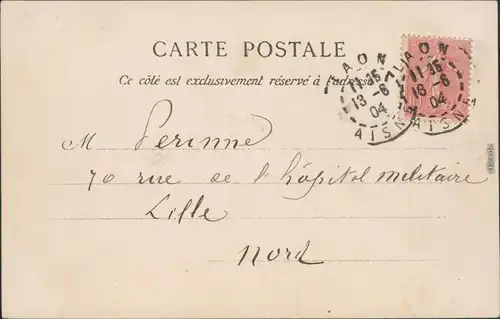 CARTE POSTALE
Ce côté est exclusivement réservé à l'adresse
LAON
11-15
13-6
04
AISNE
LAON
11-15
13-6
04
AISNE
M Perinne
70 rue de l'hôpital militaire
Lille
Nord